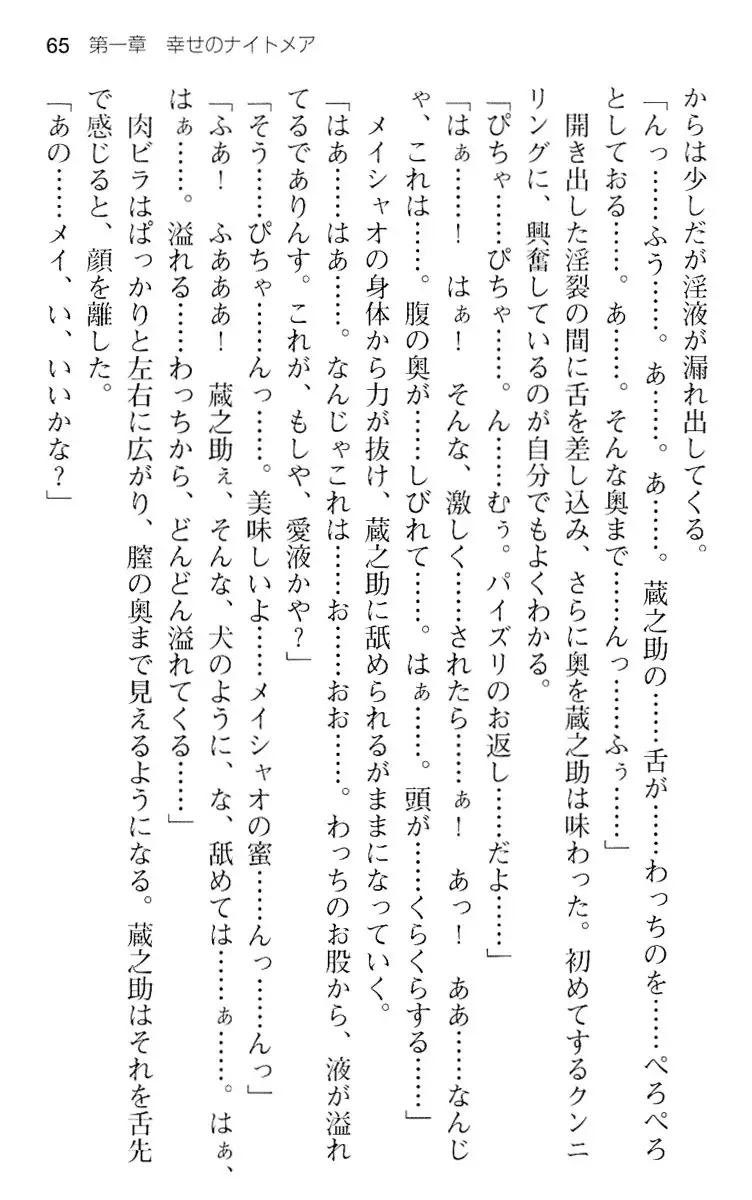 65 第一章 幸せのナイトメア
からは少しだが淫液が漏れ出してくる。
「んっ……ふう……。あ……。あ……。蔵之助の……舌が……わっちのを……ぺろぺろ
としておる……。あ……。そんな奥まで……んっ……ふぅ……」
開き出した淫裂の間に舌を差し込み、さらに奥を蔵之助は味わった。初めてするクンニ
リングに、興奮しているのが自分でもよくわかる。
「ぴちゃ……ぴちゃ……。ん……むぅ。パイズリのお返し……だよ……」
「はぁ……！ はぁ！ そんな、激しく……されたら……ぁ！ あっ！ ああ……なんじ
ゃ、これは……。腹の奥が……しびれて……。はぁ……。頭が……くらくらする……」
メイシャオの身体から力が抜け、蔵之助に舐められるがままになっていく。
「はあ……はあ……。なんじゃこれは……お……おお……。わっちのお股から、液が溢れ
てるでありんす。これが、もしや、愛液かや？」
「そう……ぴちゃ……んっ……。美味しいよ……メイシャオの蜜……んっ……んっ」
「ふあ！ ふあああ！ 蔵之助ぇ、そんな、犬のように、な、舐めては……ぁ……。はぁ、
はぁ……。溢れる……わっちから、どんどん溢れてくる……」
肉ビラはぱっかりと左右に広がり、膣の奥まで見えるようになる。蔵之助はそれを舌先
で感じると、顔を離した。
「あの……メイ、い、いいかな？」